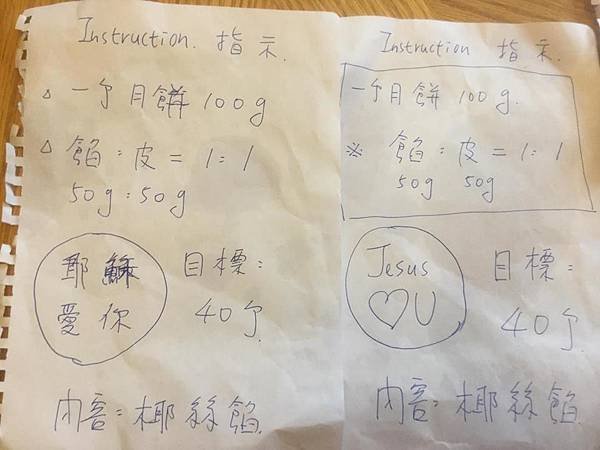 Instruction. 指示.
△ 一个月餅 100g
△ 餡:皮 = 1:1
50g:50g
耶穌
愛你
目標:
40个
內容:椰絲餡.
Instruction 指示.
一个月餅 100g.
※ 餡:皮 = 1:1
50g 50g
Jesus
♡U
目標:
40个
內容:椰絲餡.